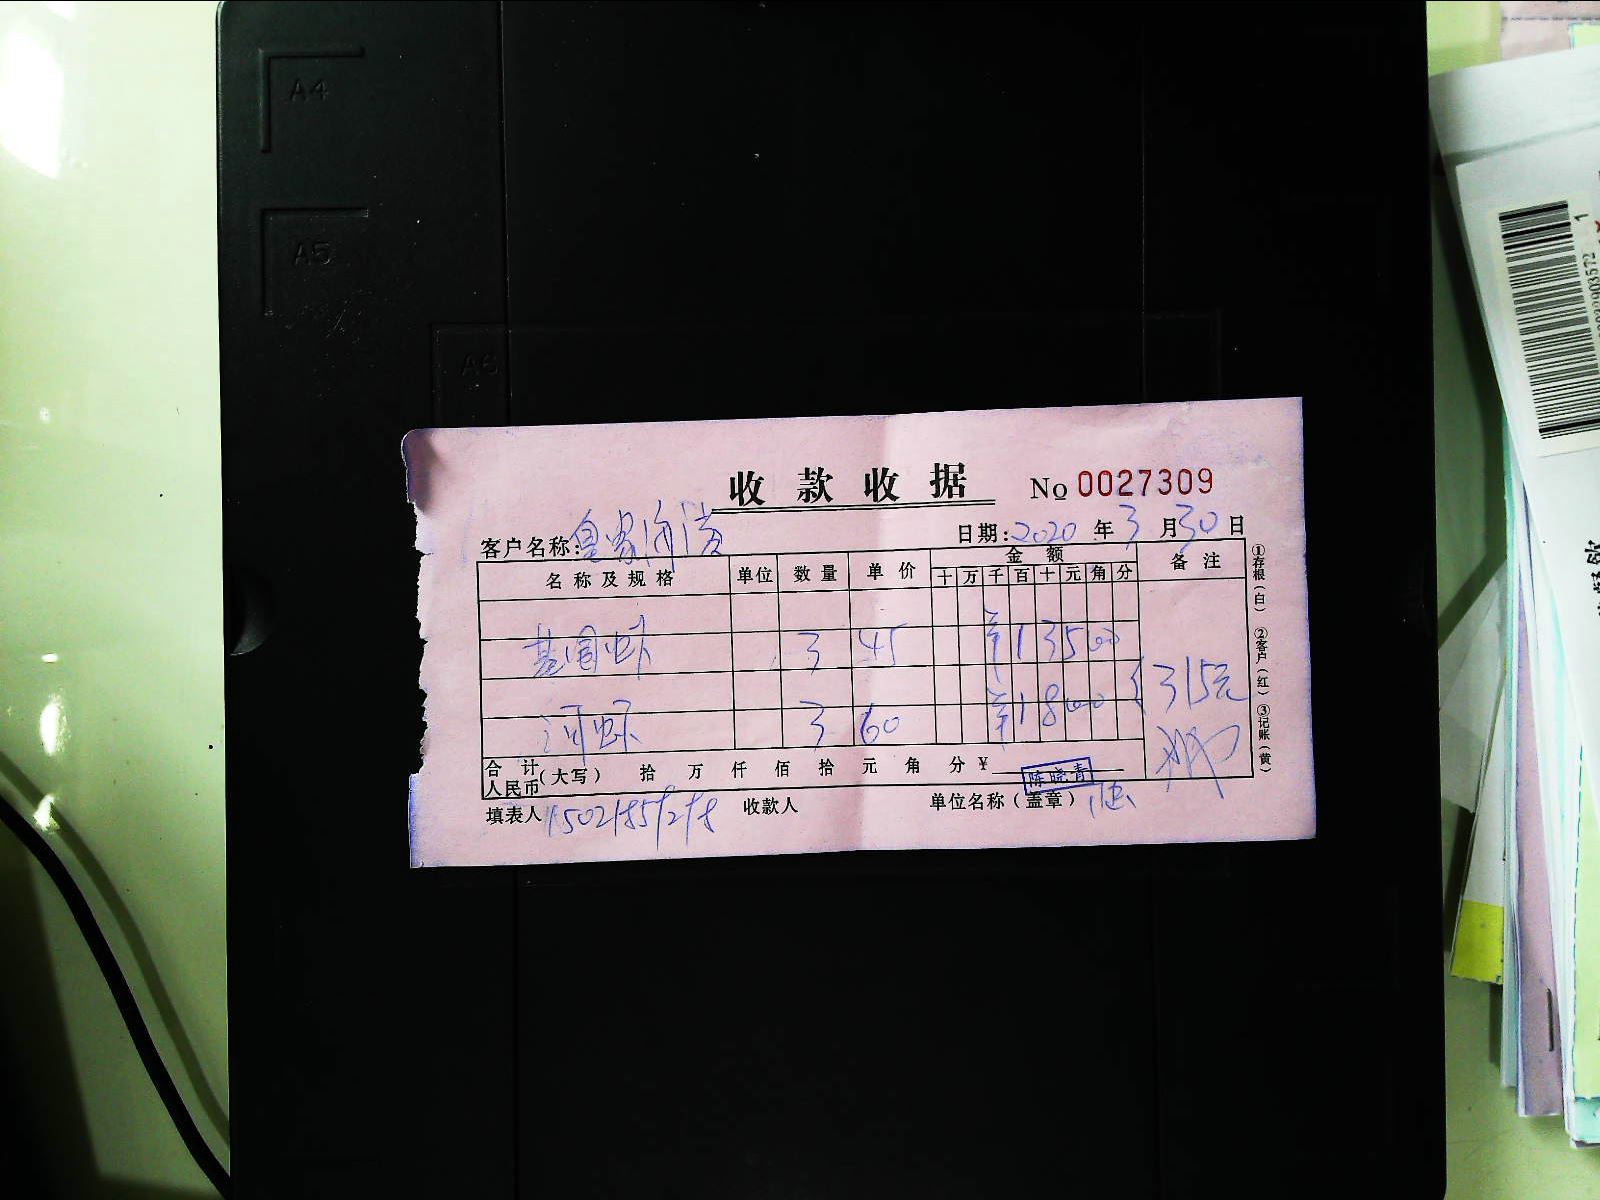 A4
A5
A6
收款收据 No 0027309
客户名称:皇家海湾 日期:2020年3月30日
名称及规格 单位 数量 单价 金额 备注
十 万 千 百 十 元 角 分
基围虾 3 45 ¥13500
河虾 3 60 ¥18000
315元
合计人民币(大写) 拾 万 仟 佰 拾 元 角 分 ¥
陈晓青
填表人 收款人 单位名称(盖章)
①存根(白) ②客户(红) ③记账(黄)
1